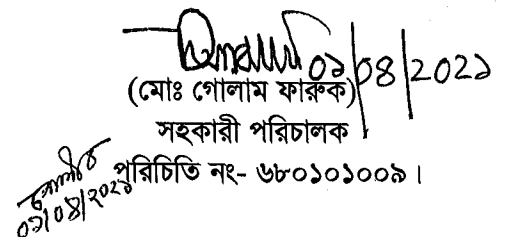 ০১/০৪/২০২১
(মোঃ গোলাম ফারুক)
সহকারী পরিচালক
পরিচিতি নং- ৬৮০১০১০০৯।
০১/০৪/২০২১